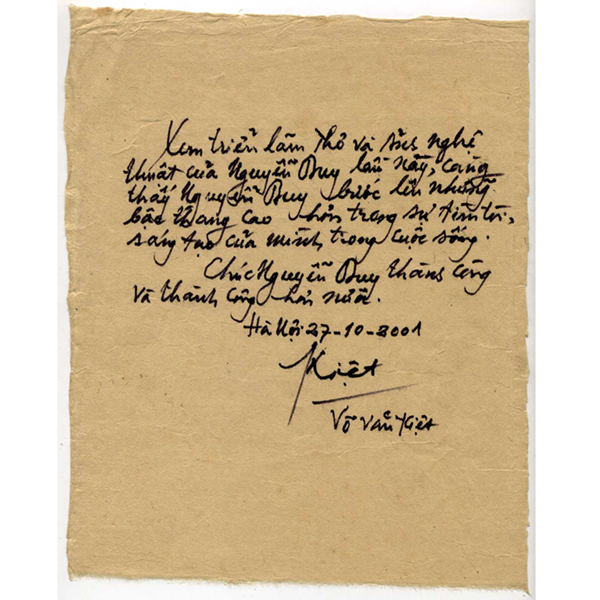 Xem triển lãm Thơ và sức nghệ
thuật của Nguyễn Duy lần này, càng
thấy Nguyễn Duy bước lên những
bậc thang cao hơn trong sự tìm tòi,
sáng tạo của mình trong cuộc sống.
Chúc Nguyễn Duy thành công
và thành công hơn nữa.
Hà Nội 27-10-2001
Kiệt
Võ Văn Kiệt